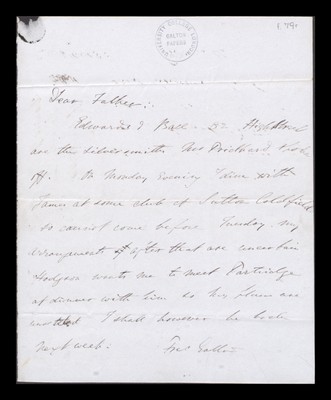 UNIVERSITY COLLEGE LONDON
GALTON
PAPERS
Dear Father,
Edwards & Ball - High Street
are the silversmiths Mrs Prichard spoke
of. On Monday Evening I dine with
James at some club at Sutton Coldfield
so cannot come before Tuesday my
arrangements after that are uncertain
Hodgson wants me to meet Partridge
at dinner with him so my plans are
I shall however be back
next week.
Fras Galton